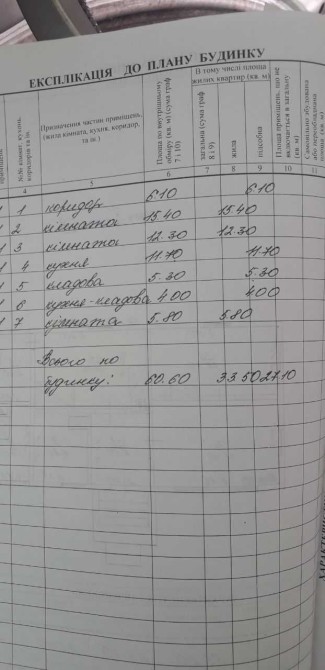 ЕКСПЛІКАЦІЯ ДО ПЛАНУ БУДИНКУ
№№ кімнат, кухонь, коридорів та ін.
Призначення частин приміщень, (жила кімната, кухня, коридор, та ін.)
Площа по внутрішньому обміру (кв. м) (сума граф 7 і 10)
В тому числі площа жилих квартир (кв. м)
загальна (сума граф 8 і 9)
жила
підсобна
Площа приміщень, що не включається в загальну (кв. м)
Самовільно збудована або переобладнана площа (кв. м)
4 5 6 7 8 9 10 11
1 1 коридор 6.10 6.10
1 2 кімната 15.40 15.40
1 3 кімната 12.30 12.30
1 4 кухня 11.70 11.70
1 5 кладова 5.30 5.30
1 6 кухня-кладова 4.00 4.00
1 7 кімната 5.80 5.80
Всього по
будинку: 60.60 33.50 27.10